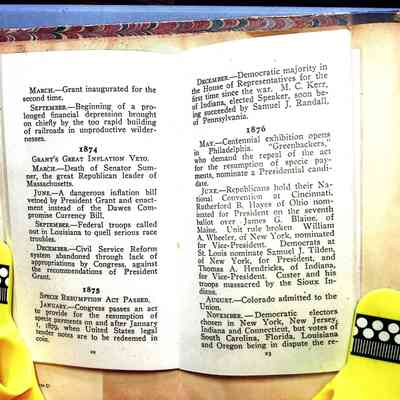 March.—Grant inaugurated for the
second time.
September.—Beginning of a pro-
longed financial depression brought
on chiefly by the too rapid building
of railroads in unproductive wilder-
nesses.
1874
Grant's Great Inflation Veto.
March.—Death of Senator Sum-
ner, the great Republican leader of
Massachusetts.
June.—A dangerous inflation bill
vetoed by President Grant and enact-
ment instead of the Dawes Com-
promise Currency Bill.
September.—Federal troops called
out in Louisiana to quell serious race
troubles.
December.—Civil Service Reform
system abandoned through lack of
appropriations by Congress, against
the recommendations of President
Grant.
1875
Specie Resumption Act Passed.
January.—Congress passes an act
to provide for the resumption of
specie payments on and after January
1, 1879, when United States legal
tender notes are to be redeemed in
coin.
22
December.—Democratic majority in
the House of Representatives for the
first time since the war. M. C. Kerr,
of Indiana, elected Speaker, soon be-
ing succeeded by Samuel J. Randall,
of Pennsylvania.
1876
May.—Centennial exhibition opens
in Philadelphia. "Greenbackers,"
who demand the repeal of the act
for the resumption of specie pay-
ments, nominate a Presidential candi-
date.
June.—Republicans hold their Na-
tional Convention at Cincinnati.
Rutherford B. Hayes of Ohio nom-
inated for President on the seventh
ballot over James G. Blaine, of
Maine. Unit rule broken. William
A. Wheeler, of New York, nominated
for Vice-President. Democrats at
St. Louis nominate Samuel J. Tilden,
of New York, for President, and
Thomas A. Hendricks, of Indiana,
for Vice-President. Custer and his
troops massacred by the Sioux In-
dians.
August.—Colorado admitted to the
Union.
November.—Democratic electors
chosen in New York, New Jersey,
Indiana and Connecticut, but votes of
South Carolina, Florida, Louisiana
and Oregon being in dispute the re-
23